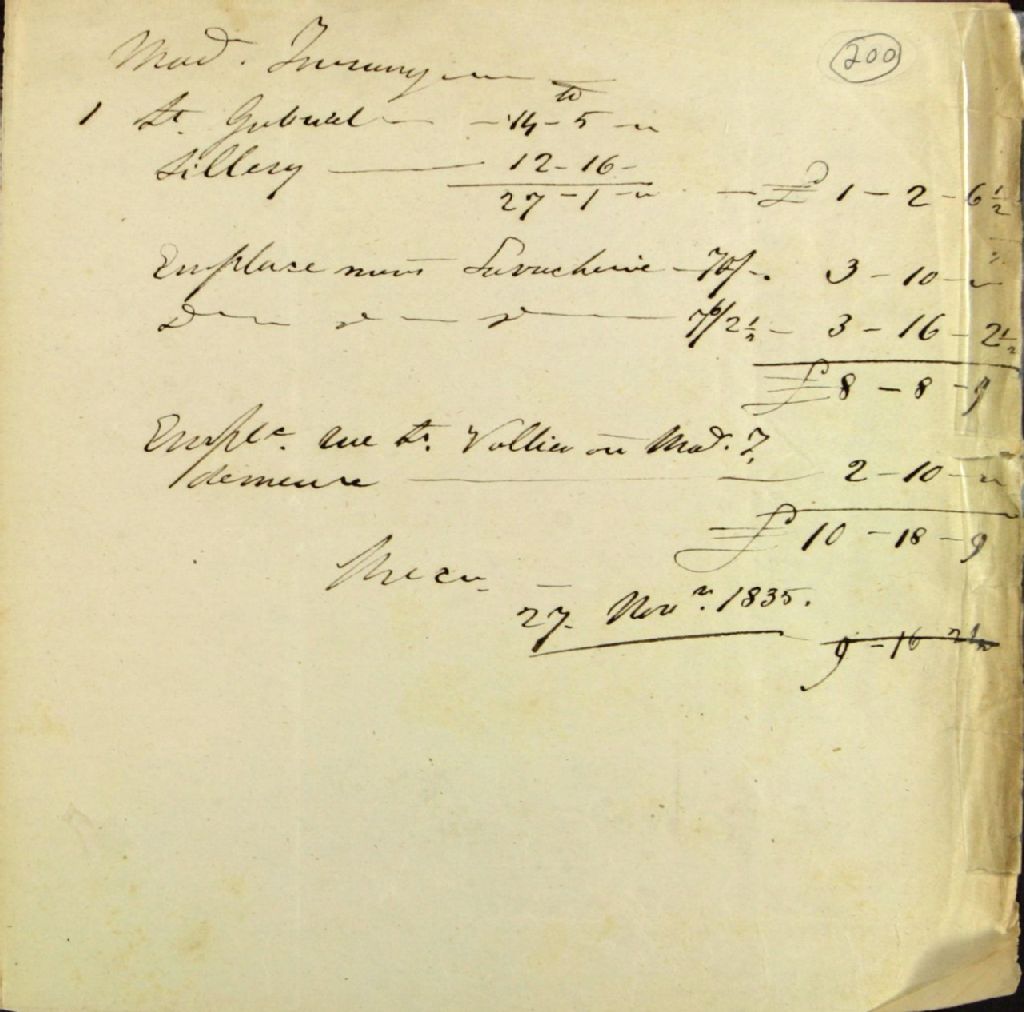 200
Mad. 
1 St. Gabriel — 14 - 5 - "
Sillery — 12 - 16 -
27 - 1 - " — £ 1 - 2 - 6 1/2
Emplace 70/- 3 - 10 - "
Do — do — do — 76/2 1/2 - 3 - 16 - 2 1/2
£ 8 - 8 - 9
Emplt. rue St. Vallier où Mad. T.
demeure — 2 - 10 - "
£ 10 - 18 - 9
27 Novr. 1835.
9 - 16 2 1/2